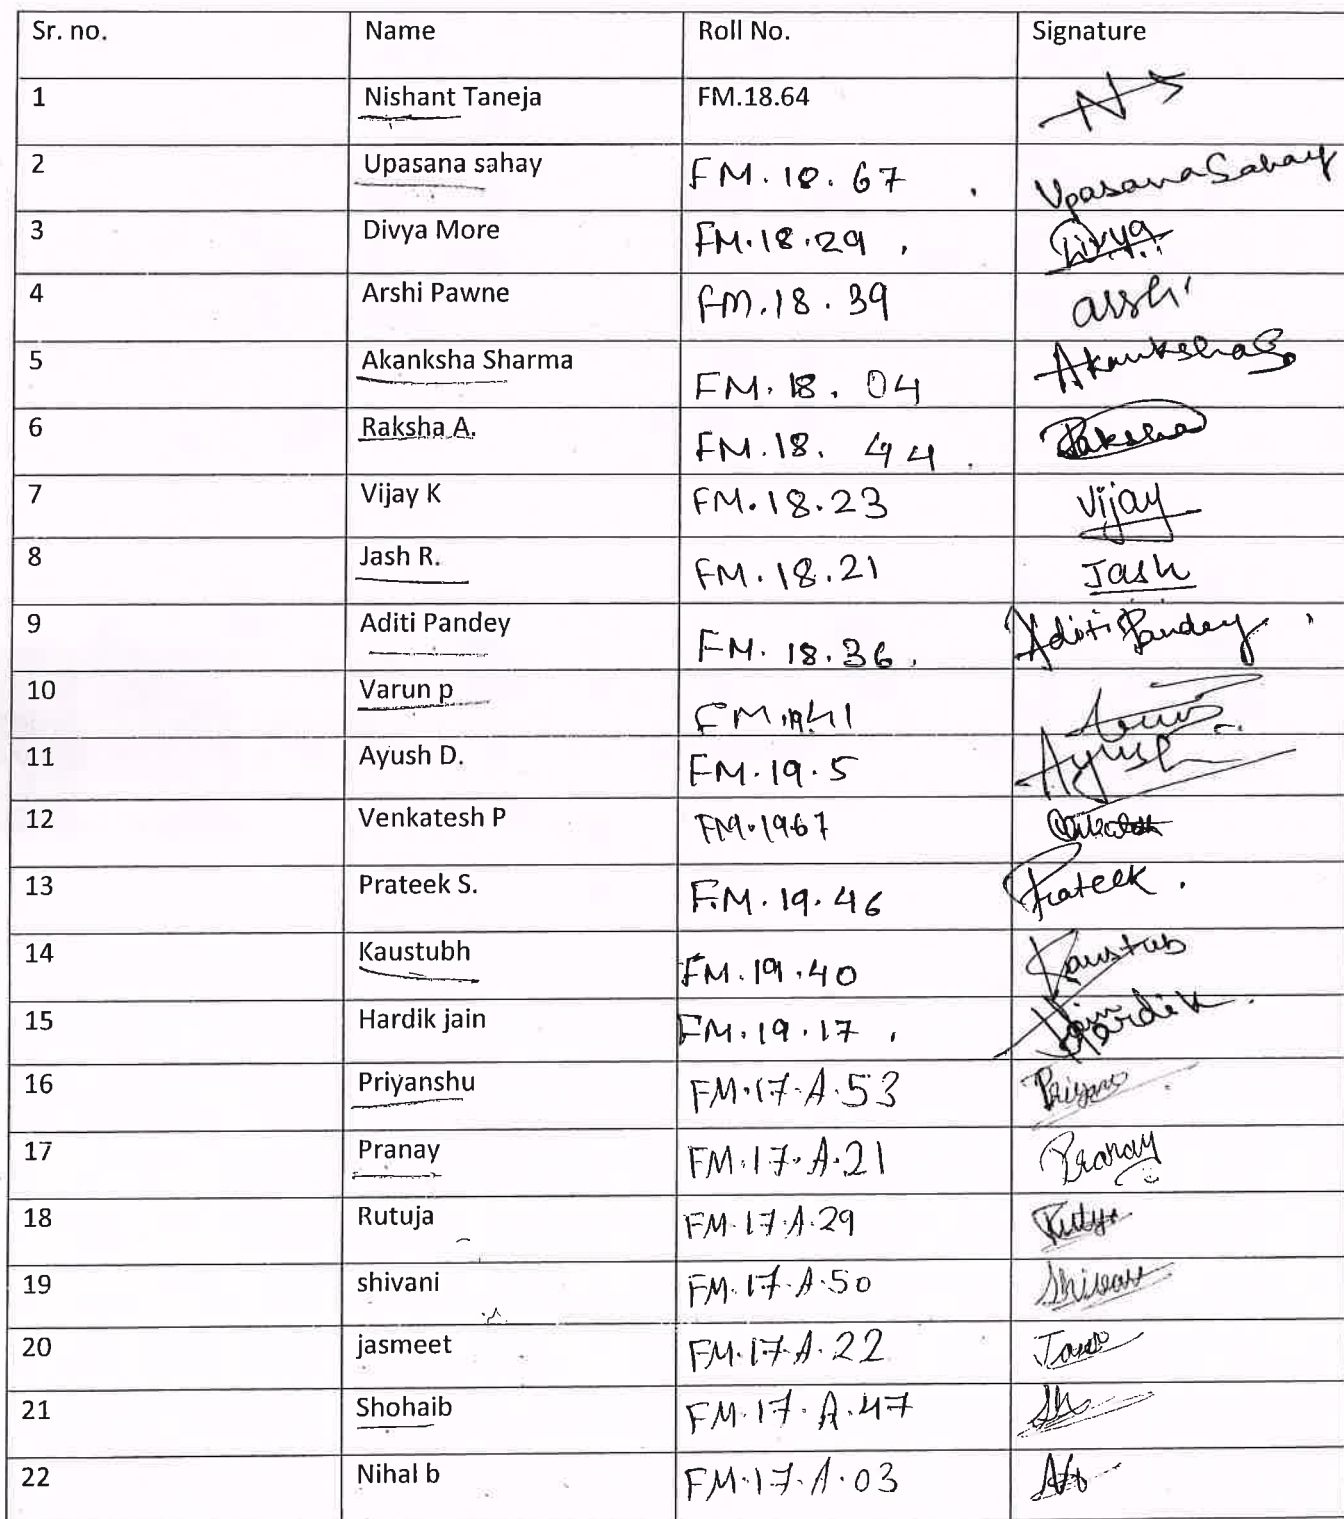 Sr. no. Name Roll No. Signature
1 Nishant Taneja FM.18.64
2 Upasana sahay FM.18.67 Upasana Sahay
3 Divya More FM.18.29 Divya
4 Arshi Pawne FM.18.39 arshi
5 Akanksha Sharma FM.18.04 Akanksha S.
6 Raksha A. FM.18.44 Raksha
7 Vijay K FM.18.23 Vijay
8 Jash R. FM.18.21 Jash
9 Aditi Pandey FM.18.36 Aditi Pandey
10 Varun p
11 Ayush D. FM.19.5 Ayush
12 Venkatesh P
13 Prateek S. FM.19.46 Prateek
14 Kaustubh FM.19.40 Kaustub
15 Hardik jain FM.19.17 Hardik
16 Priyanshu FM.17.A.53
17 Pranay FM.17.A.21 Pranay
18 Rutuja FM.17.A.29
19 shivani FM.17.A.50
20 jasmeet FM.17.A.22
21 Shohaib FM.17.A.47
22 Nihal b FM.17.A.03